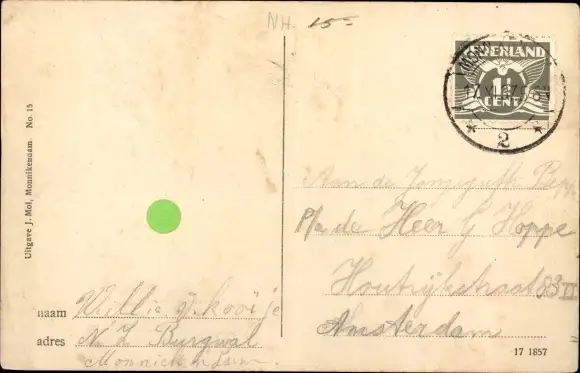 NH. 15=
NEDERLAND
1½
CENT
17 XI 37
2
Uitgave J. Mol, Monnikendam No. 15
Aan de
P/a de Heer G Hoppe
Houtrijkstraat 83 II
Amsterdam
naam Willie
adres N. Z Burgwal
Monnickendam.
17 1857